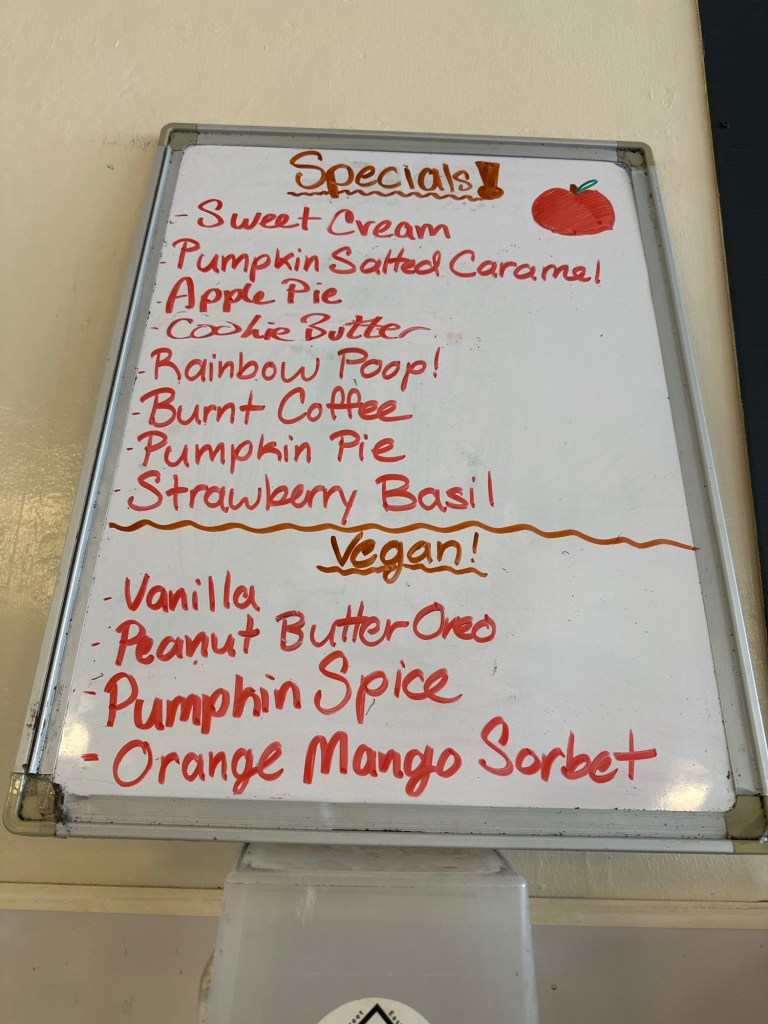 Specials!
- Sweet Cream
- Pumpkin Salted Caramel
- Apple Pie
- Cookie Butter
- Rainbow Poop!
- Burnt Coffee
- Pumpkin Pie
- Strawberry Basil
Vegan!
- Vanilla
- Peanut Butter Oreo
- Pumpkin Spice
- Orange Mango Sorbet